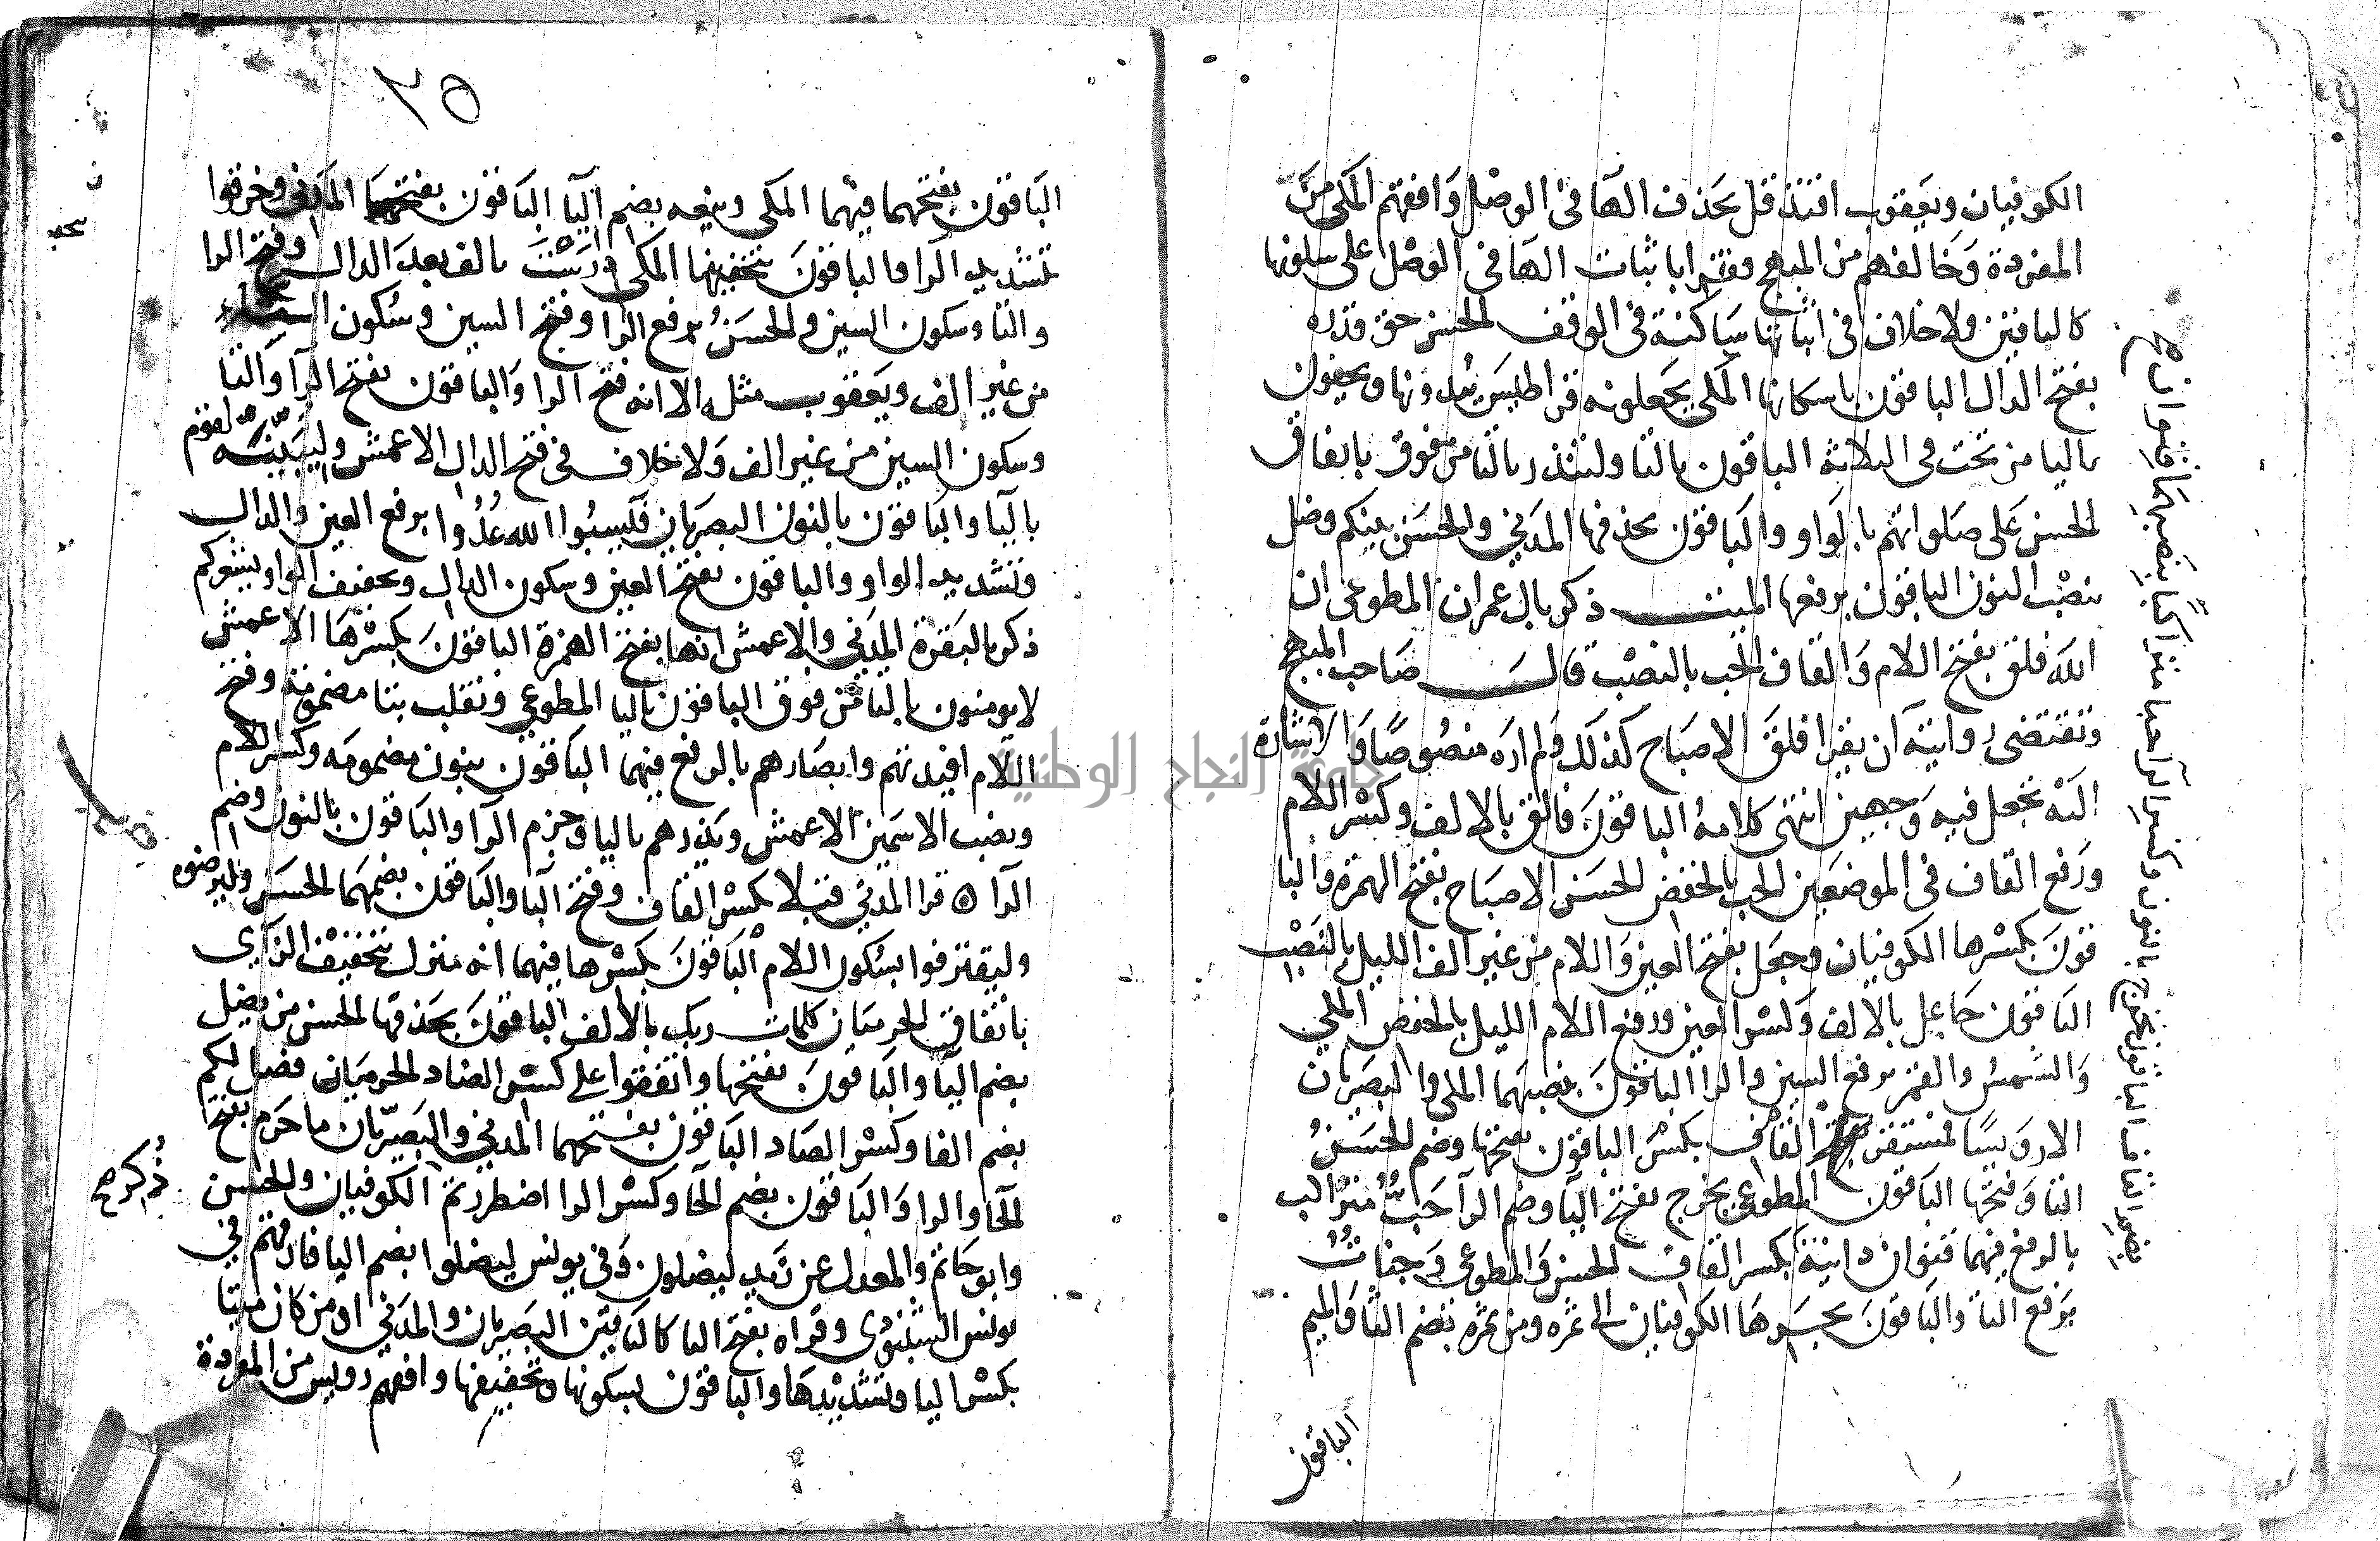 الكوفيان ويعقوب اقتد قل بحذف الها في الوصل وافقهم المكي من
المفردة وخالفهم من المبهج وقرا باثبات الها في الوصل على سكونها
كالباقين ولا خلاف في اثباتها ساكنة في الوقف الحسن حق قدره
بفتح الدال الباقون باسكانها المكي يجعلونه قراطيس يبدونها ويخفون
باليا من تحت في الثلاثة الباقون بالتا ولتنذر بالتا من فوق باتفاق
الحسن على صلواتهم بالواو والباقون بحذفها المدني والحسن بينكم وضل
بنصب النون الباقون برفعها الميت ذكر بال عمران المطوعي ان
الله فلق بفتح اللام والقاف الحب بالنصب قال صاحب المبهج
وتقتضي روايته ان يقرا فلق الاصباح كذلك ولم اره منصوصا والاشارة
اليه تجعل فيه وجهين انتهى كلامه الباقون فالق بالالف وكسر اللام
ورفع القاف في الموضعين الحب بالخفض الحسن الاصباح بفتح الهمزة والبا
قون بكسرها الكوفيان وجعل بفتح العين واللام من غير الف الليل بالنصب
الباقون جاعل بالالف وكسر العين ورفع اللام الليل بالخفض المكي
والشمس والقمر برفع السين والرا الباقون بنصبهما المكي والبصريان
الا رويسا فمستقر القاف بكسر الباقون بفتحها وضم الحسن
التا وفتحها الباقون المطوعي يخرج بفتح اليا وضم الرا حب متراكب
بالرفع فيهما قنوان دانية بكسر القاف الحسن والمطوعي وجنات
برفع التا والباقون بجرها الكوفيان الى ثمره ومن ثمره بضم الثا والميم
الباقون
٦٥
الباقون بفتحهما فيهما المكي وينعه بضم اليا الباقون بفتحها المدني وخرقوا
بتشديد الرا والباقون بتخفيفها المكي دارست بالف بعد الدال وفتح الرا
والتا وسكون السين والحسن برفع الرا وفتح السين وسكون التا
من غير الف ويعقوب مثله الا انه فتح الرا والباقون بفتح الرا والتا
وسكون السين من غير الف ولا خلاف في فتح الدال الاعمش وليبينه لقوم
باليا والباقون بالنون البصريان فيسبوا الله عدوا برفع العين والدال
وتشديد الواو والباقون بفتح العين وسكون الدال وتخفيف الواو يشعركم
ذكر بالبقرة المدني والاعمش انها بفتح الهمزة الباقون بكسرها الاعمش
لا يومنون بالتا من فوق الباقون باليا المطوعي وتقلب بتا مضمومة وفتح
اللام افيدتهم وابصارهم بالرفع فيهما الباقون بنون مضمومه وكسر اللام
ونصب الاسمين الاعمش ويذرهم باليا وجزم الرا والباقون بالنون وضم
الرا ۞ قرا المدني قبلا بكسر القاف وفتح البا والباقون بضمهما الحسن وليرضوه
وليقترفوا بسكون اللام الباقون بكسرها فيهما انه منزل بتخفيف الزاي
باتفاق الحرميان كلمات ربك بالالف الباقون بحذفها الحسن من يضل
بضم اليا والباقون بفتحها واتفقوا على كسر الضاد الحرميان فصل لكم
بضم الفا وكسر الصاد الباقون بفتحهما المدني والبصريان ما حرم بفتح
الحا والرا والباقون بضم الحا وكسر الرا اضطررتم الكوفيان والحسن
ذكر صح
وابو حاتم والمعدل عن زيد ليضلون وفي يونس ليضلوا بضم اليا فارقهم في
يونس الشنبوذي وقراه بفتح اليا كالباقين البصريان والمدني اومن كان ميتا
بكسر اليا وتشديدها والباقون بسكونها وتخفيفها وافقهم رويس من المفردة